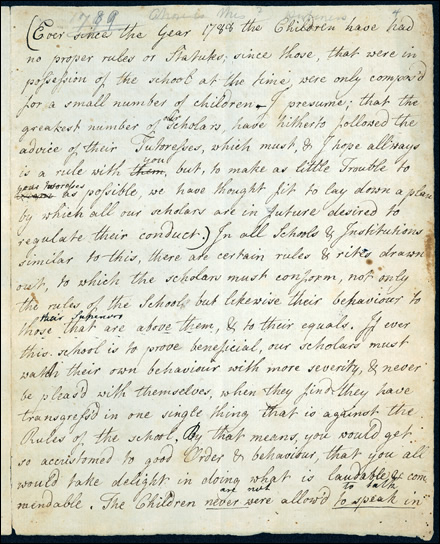 1789
(Ever since the Year 1788 the Children have had
no proper rules or Statutes, since those, that were in
possession of the school at the time, were only compos'd
for a small number of children. I presume, that the
greatest number of our Scholars, have hitherto followed the
advice of their Tutoresses, which must, & I hope allways
you
is a rule with them, but, to make as little Trouble to
your tutoresses
as possible, we have thought fit to lay down a plan
by which all our scholars are in future desired to
regulate their conduct.) In all Schools & Institutions
similar to this, there are certain rules & rites drawn
out, to which the scholars must conform, not only
the rules of the School, but likewise their behaviour to
their Superiors
those that are above them, & to their equals. If ever
this school is to prove beneficial, our scholars must
watch their own behaviour with more severity, & never
be pleas'd with themselves, when they find they have
transgress'd in one single thing that is against the
Rules of the school. By that means, you would get
so accustomed to good Order & behaviour, that you all
would take delight in doing what is laudable & com
mindable. The Children never were allow'd to speak in
are not
to talk